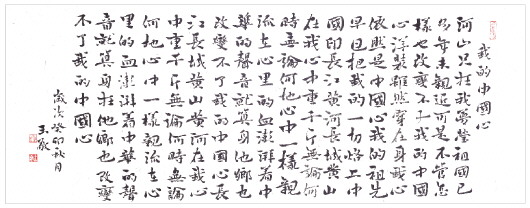 我的中國心
河山只在我夢縈祖國已
多年未親近可是不管怎
樣也改變不了我的中國
心洋裝雖然穿在身我心
依然是中國心我的祖先
早已把我的一切烙上中
國印長江黃河長城黃山
在我心中重千斤無論何
時無論何地心中一樣親
流在心里的血澎湃着中
華的聲音就算身在他鄉也
改變不了我的中國心長
江長城黃山黃河在我心
中重千斤無論何時無論
何地心中一樣親流在心
里的血澎湃着中華的聲
音就算身在他鄉也改變
不了我的中國心
歲次癸卯秋月
王